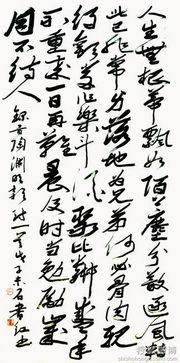 人生無根蒂飄如陌上塵分散逐風轉
此已非常身落地為兄弟何必骨肉親
得歡當作樂斗酒聚比鄰盛年
不重來一日再難晨及時當勉勵歲
月不待人
錄晉陶淵明雜詩一首戊子